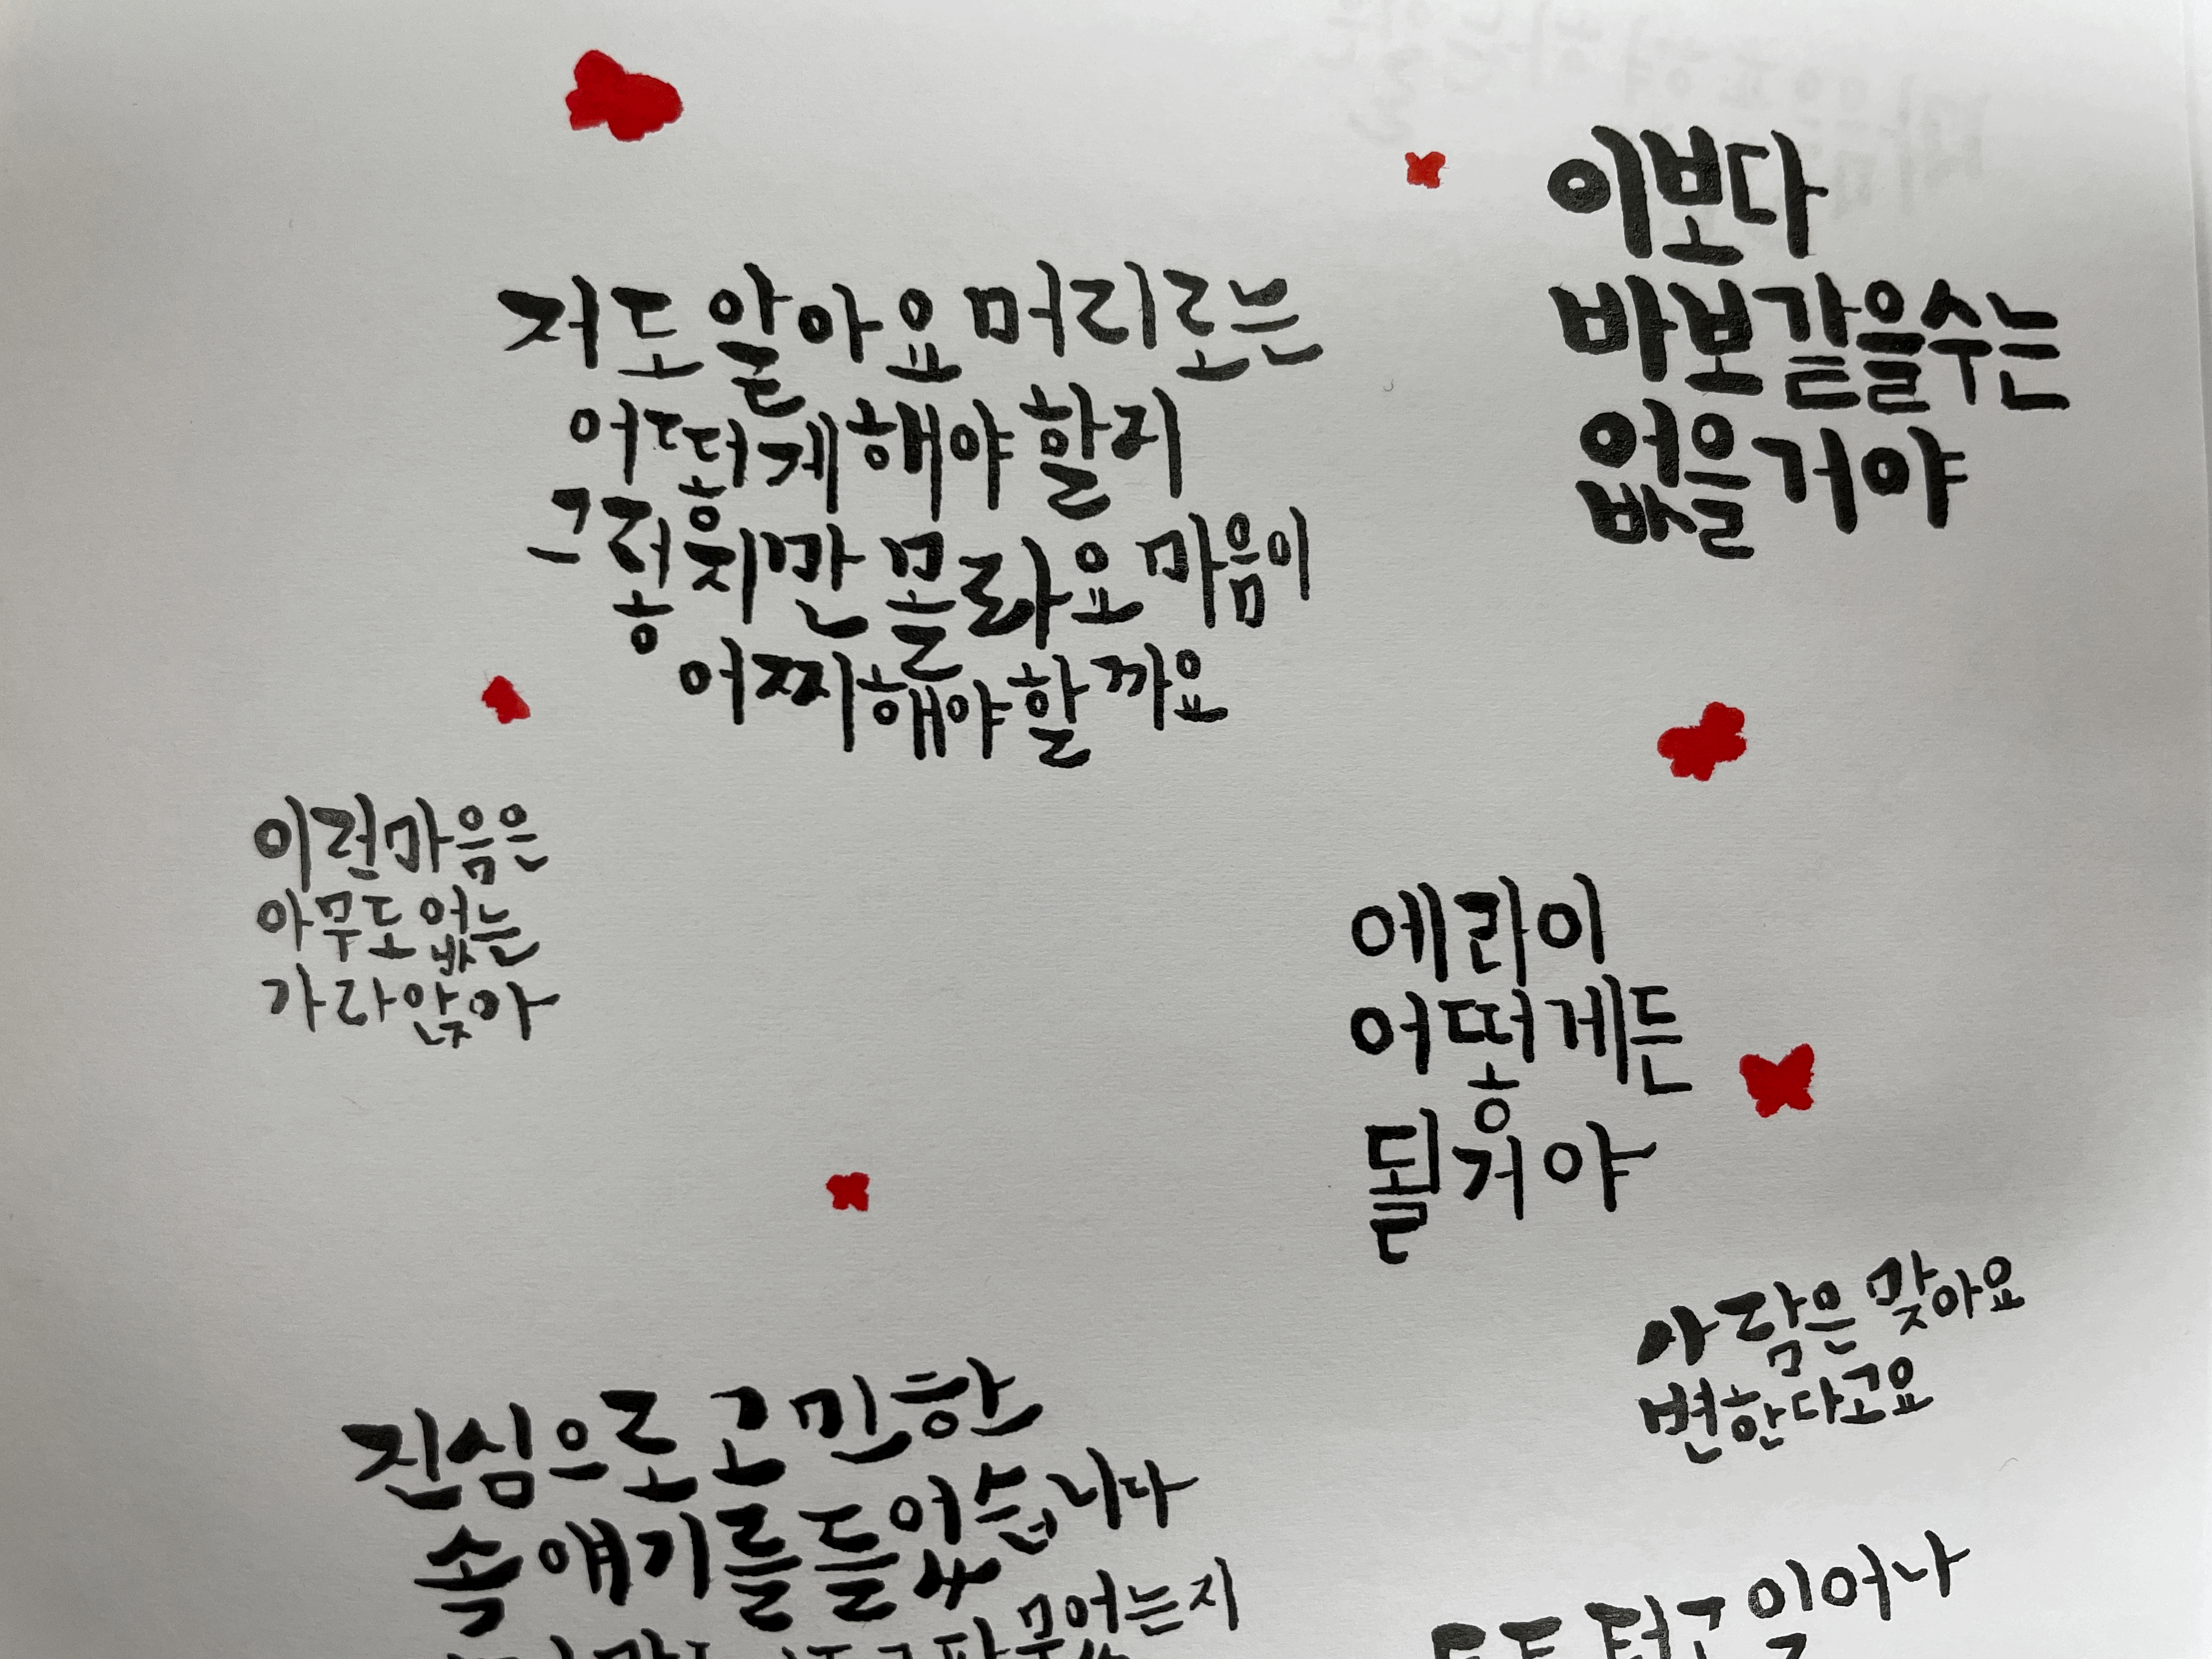 이보다
바보 같을 수는
없을 거야
저도 알아요 머리로는
어떻게 해야 할지
그렇지만 몰라요 마음이
어찌해야 할까요
이런 마음은
아무도 없는
가라앉아
에라이
어떻게든
될 거야
사람은 맞아요
변한다고요
진심으로 고민한
속 얘기를 들었습니다
무엇는지
툭툭 털고 일어나